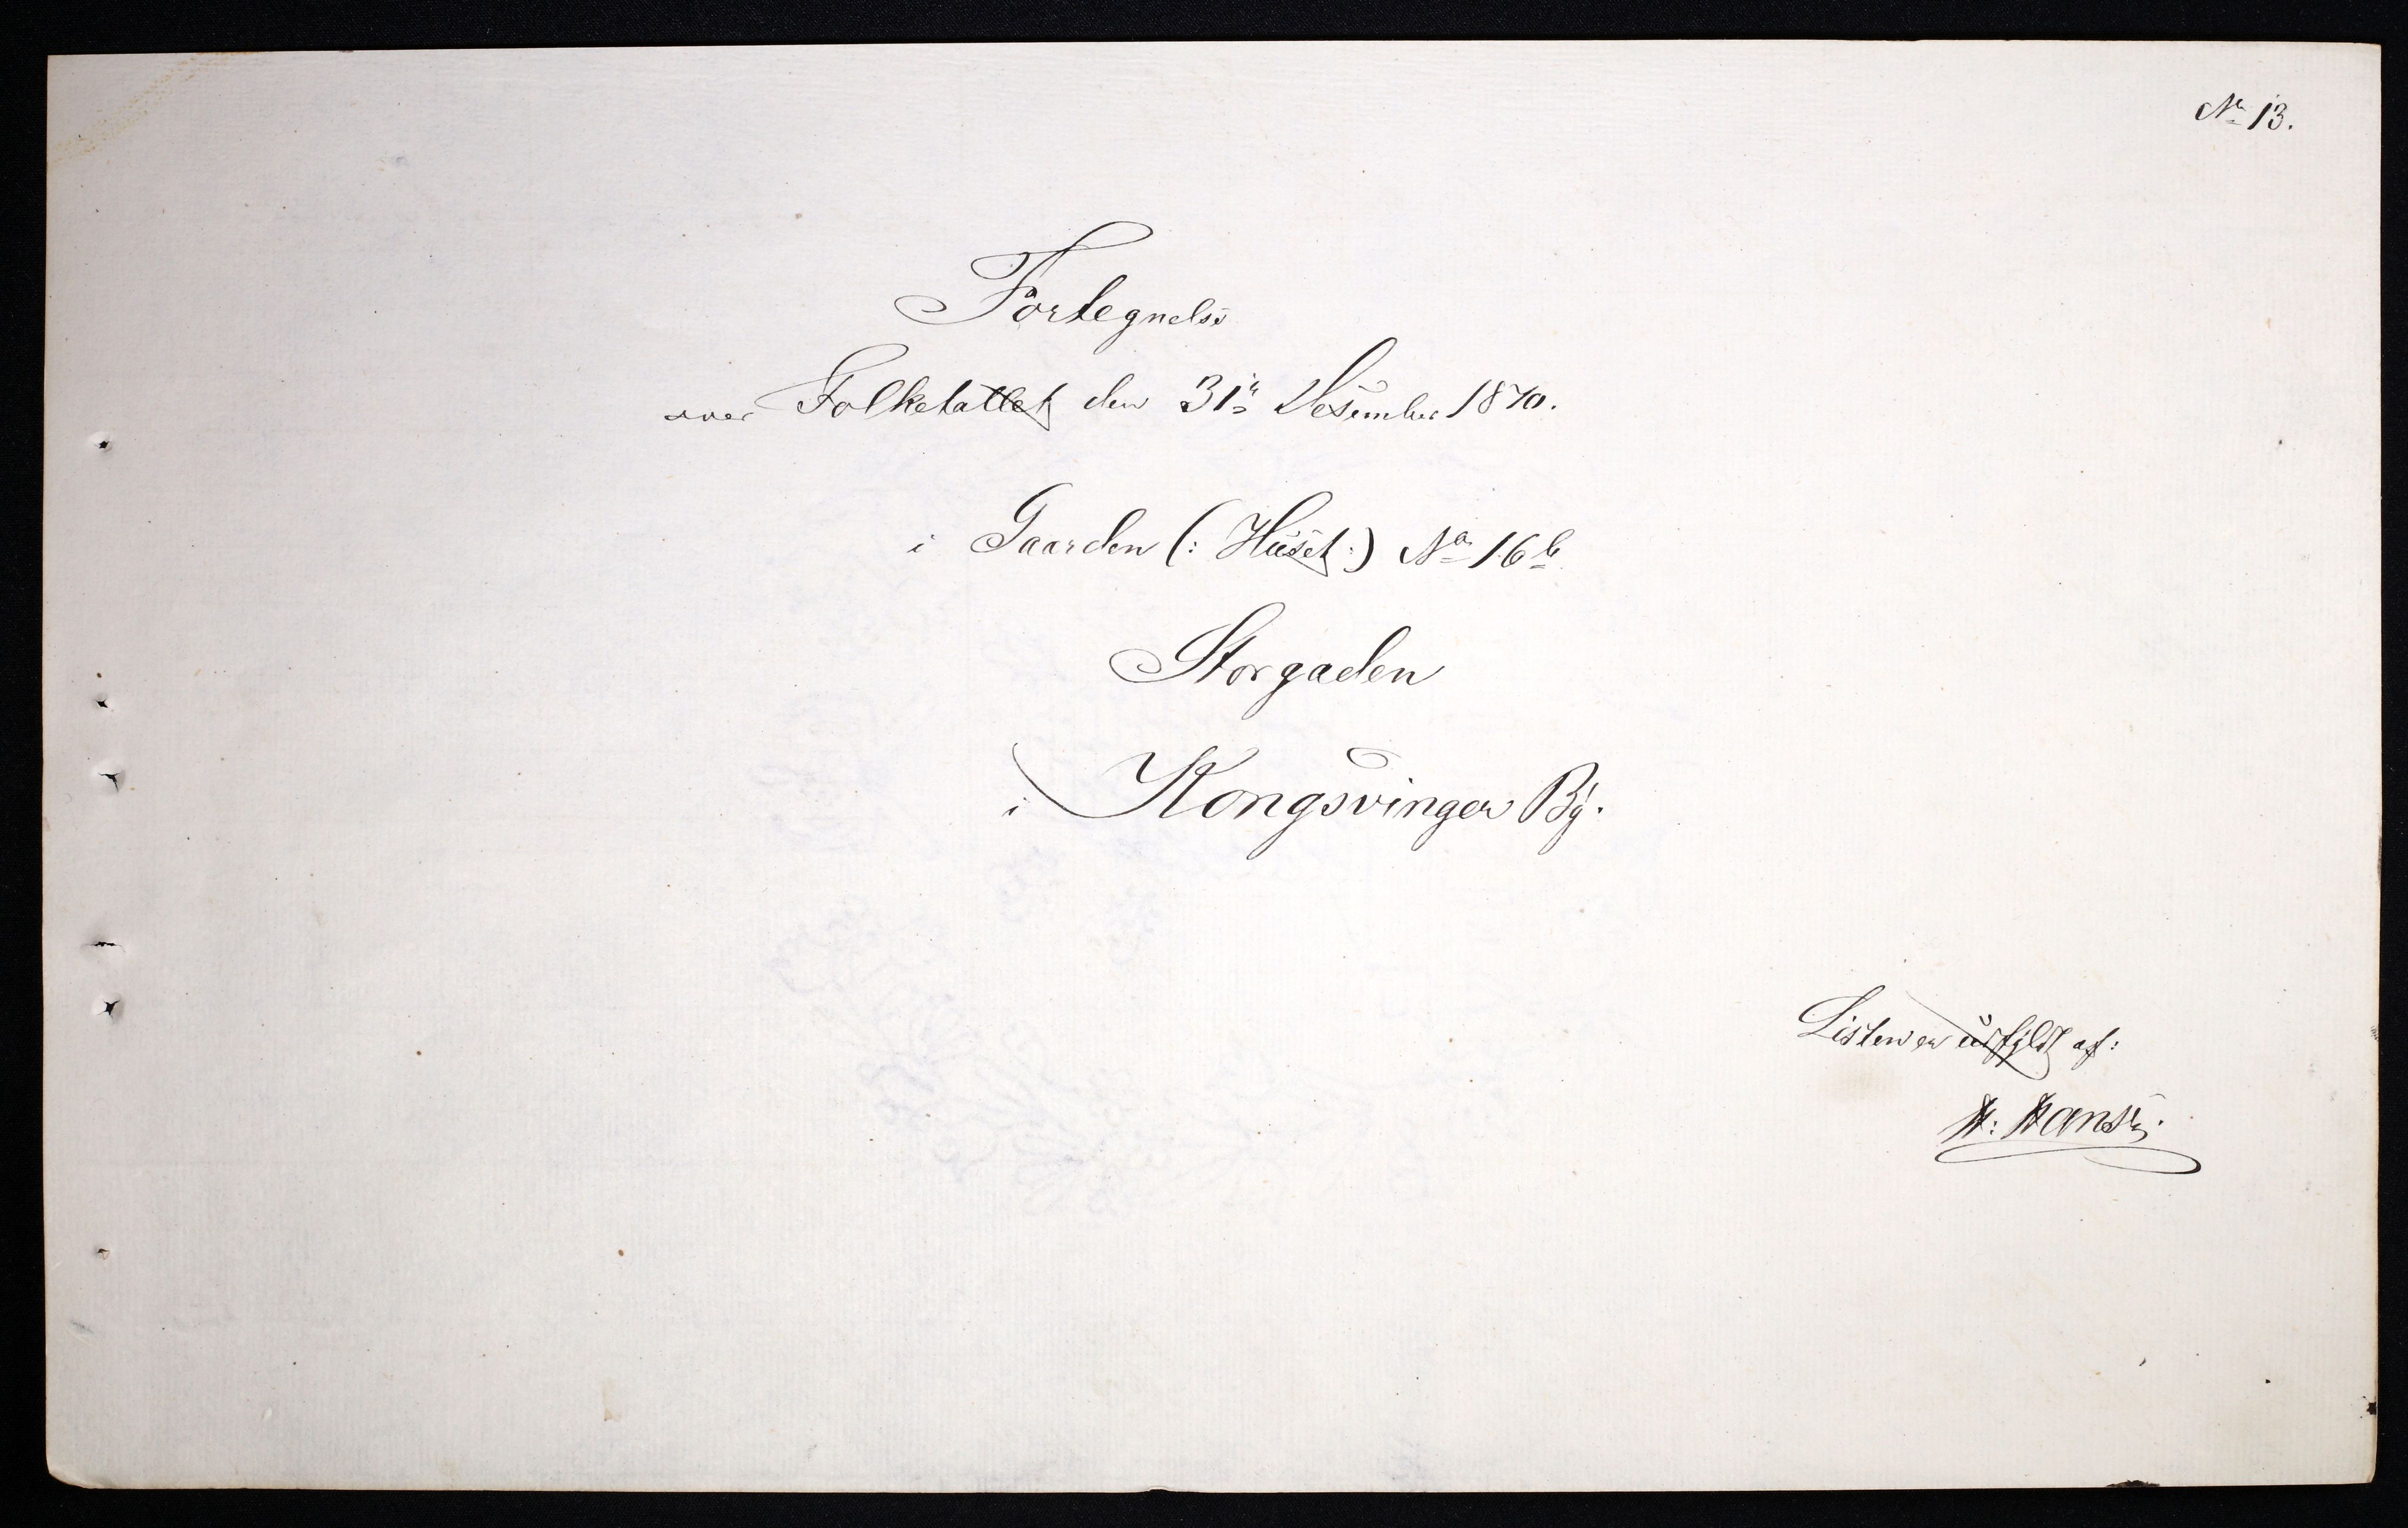 No 13.
Fortegnelse
over Folketallet den 31te Desember 1870.
i Gaarden (: Huset :) No 16b
Storgaden
i Kongsvinger By.
Listen er udfyldt af:
H: Hansen.